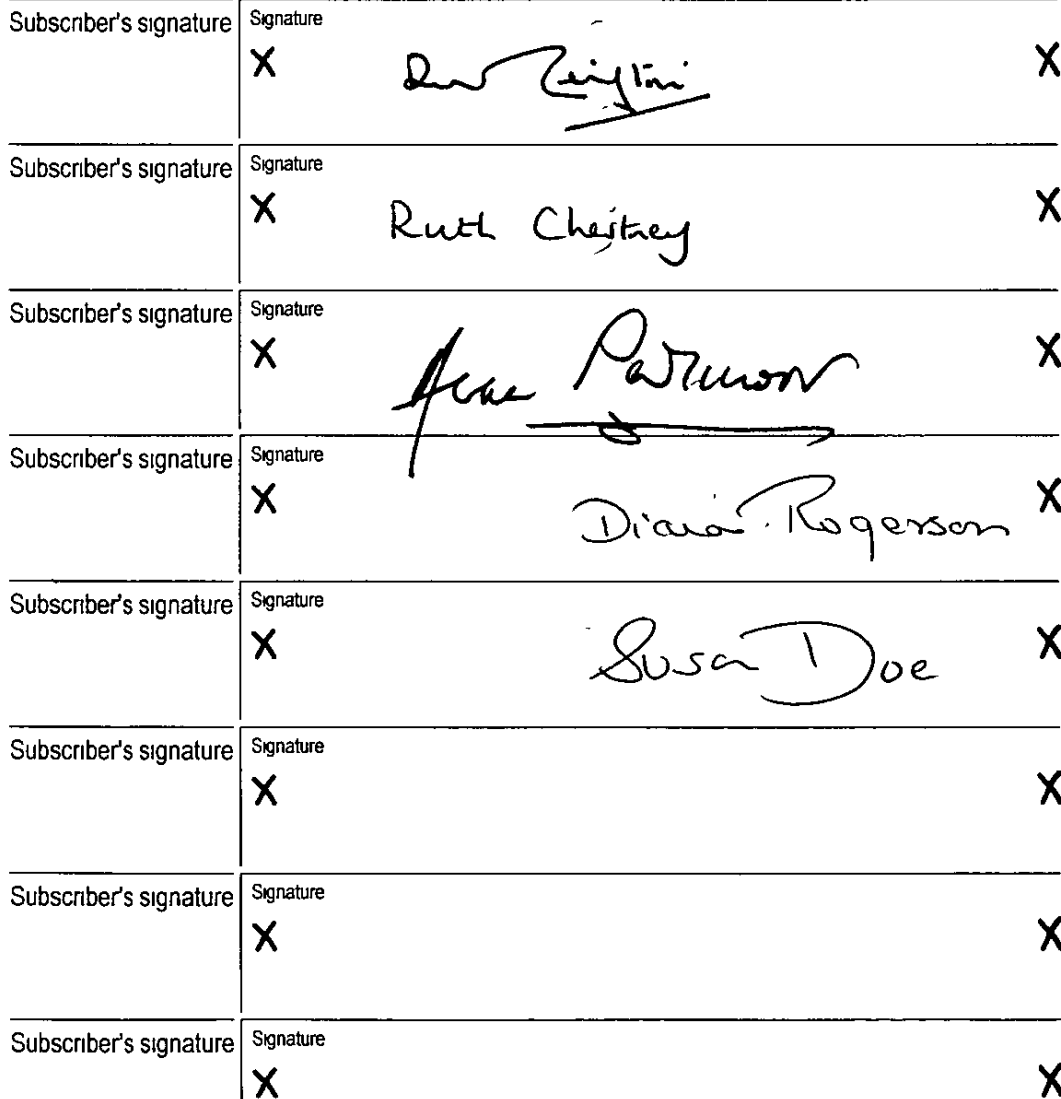 Subscriber's signature
Signature
X X
Subscriber's signature
Signature
X Ruth Chestney X
Subscriber's signature
Signature
X X
Subscriber's signature
Signature
X Diana Rogerson X
Subscriber's signature
Signature
X Susan Doe X
Subscriber's signature
Signature
X X
Subscriber's signature
Signature
X X
Subscriber's signature
Signature
X X